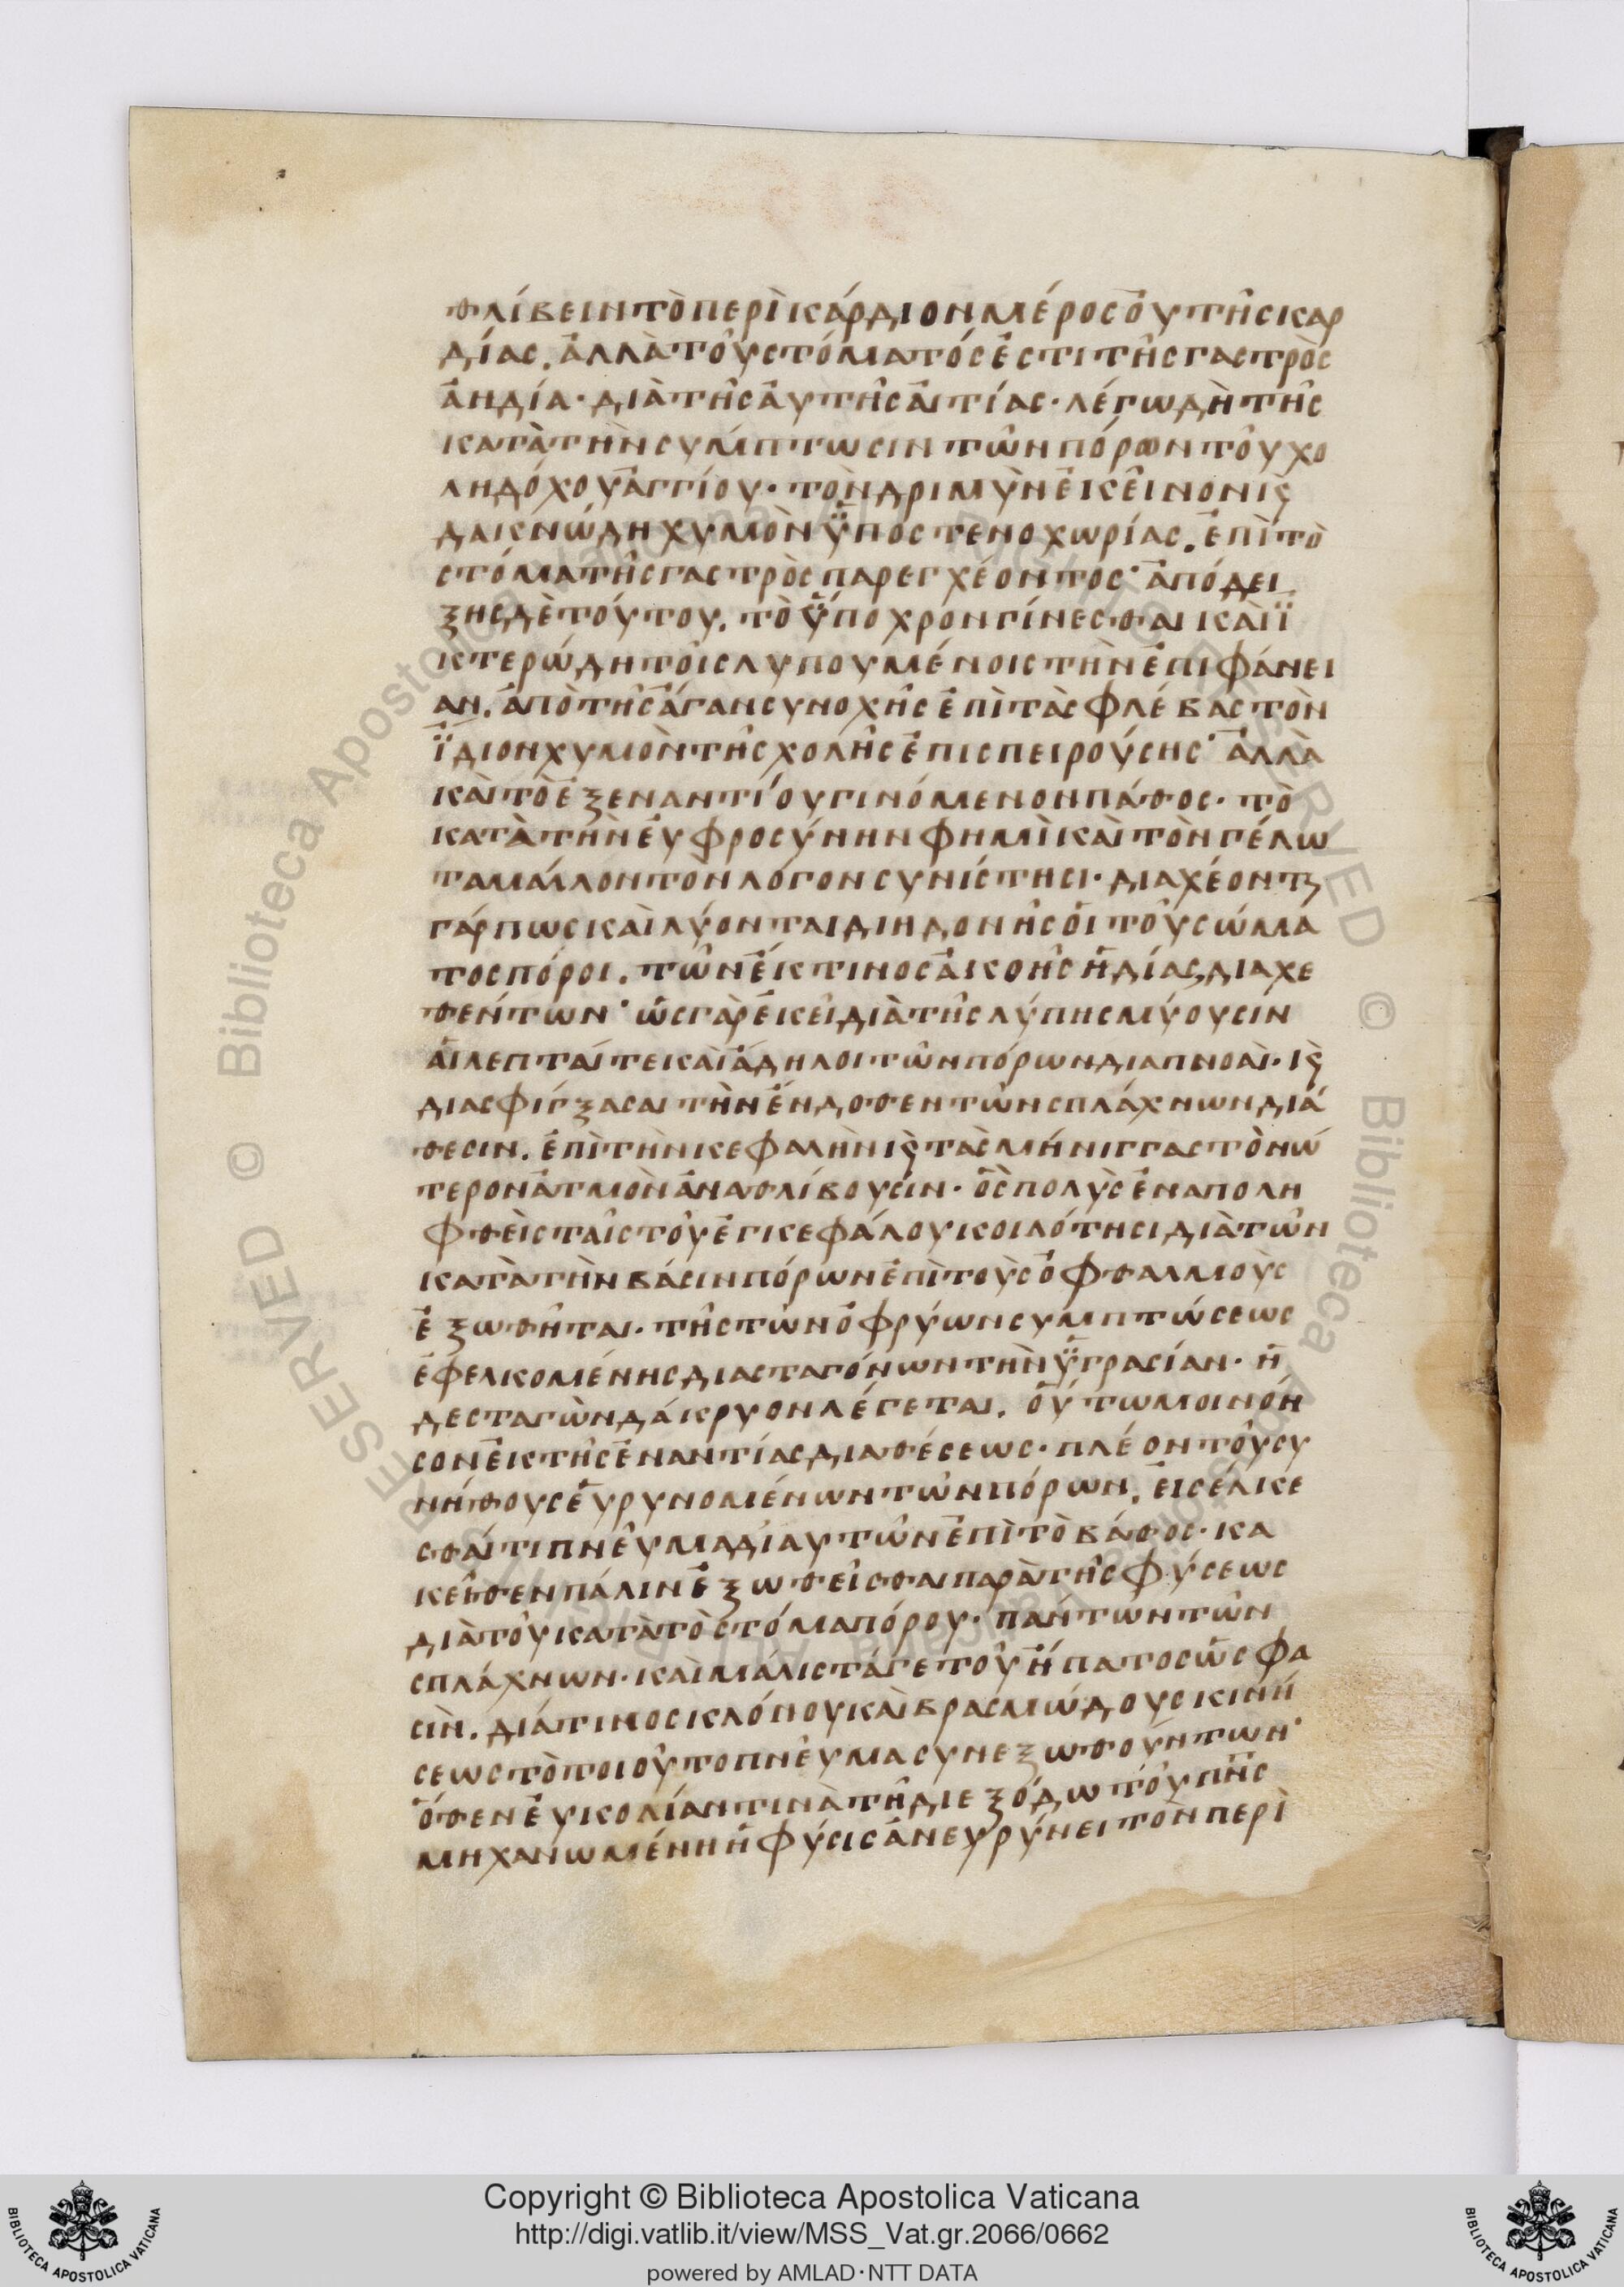 θλίβειν τὸ περὶ κάρδιον μέρος ὀυ τῆς καρ
δίας. ἀλλὰ τοῦ στόματός ἐστι τῆς γαστρὸς
ἀηδία· διὰ τῆς ἀυτῆς ἀιτίας· λέγω δὴ τῆς
κατὰ τὴν σύμπτωσιν τῶν πόρων τοῦ χο
ληδόχου ἀγγίου· τὸν δριμὺν ἐκεῖνον κ̀
δακνώδη χυμὸν ϋ̔πὸ στενοχωρίας. ἐπὶ τὸ
στόμα τῆς γαστρὸς παρεγχέοντος· ἀπόδει
ξης δὲ τούτου. τὸ ϋ̔πόχρον γίνεσθαι καὶ ϊ̓
κτερώδη τοῖς λυπουμένοις τὴν ἐπιφάνει
αν. ἀπὸ τῆς ἄγαν συνοχῆς ἐπὶ τὰς φλέβας τὸν
ϊ̓́διον χυμὸν τῆς χολῆς ἐπισπειρούσης· ἀλλὰ
καὶ τὸ ἐξεναντίου γινόμενον πάθος· τὸ
κατὰ τὴν ἐυφροσύνην φημὶ καὶ τὸν γέλω
τα μάλλον τον λόγον συνίστησι· διαχέοντ
γάρ πως καὶ λύονται δι ηδονῆς ὁι τοῦ σώμα
τος πόροι. τῶν ἔκ τινος ἀκοῆς ἡδίας διαχε
θέντων· ὡς γὰρ ἐκεῖ διὰ τῆς λύπης μύουσιν
ἁι λεπταί τε καὶ ἄδηλοι τῶν πόρων διαπνοαὶ· κ̀
διασφίγξασαι τὴν ἔνδοθεν τῶν σπλάχνων διά
θεσιν. ἐπὶ τὴν κεφαλὴν κ̀ τὰς μήνιγγας τὸ νώ
τερον ἀτμὸν ἀναθλίβουσιν· ὃς πολὺς ἐναπολη
φθεὶς ταῖς τοῦ ἐγκεφάλου κοιλότησι διὰ τῶν
κατὰ τὴν βάσιν πόρων ἐπὶ τοὺς ὀφθαλμοὺς
ἐξωθῆται· τῆς τῶν ὀφρύων συμπτώσεως
ἐφελκομένης διασταγόνων τὴν ϋ̔γρασίαν· ἡ
δε σταγὼν δάκρυον λέγεται. ὅυτω μοι νόη
σον ἐκ τῆς ἐναντίας διαθέσεως· πλέον τοῦ συ
νήθους ἐυρυνομένων τῶν πόρων. ἐισέλκε
σθαί τι πνεῦμα δί αυτῶν ἐπὶ τὸ βάθος· κα
κεῖθεν πάλιν ἐξωθεῖσθαι παρὰ τῆς φύσεως
διὰ τοῦ κατὰ τὸ στόμα πόρου· πάντων τῶν
σπλάχνων· καὶ μάλιστά γε τοῦ ἥπατος ὥς φα
σὶν. διά τινος κλόνου καὶ βρασμώδους κινή
σεως τὸ τοιοῦτο πνεῦμα συνεξωθούντων·
ὅθεν ἐυκολίαν τινὰ τῆ διεξόδω τοῦ πν̅ς
μηχανωμένη ἡ φύσις ἀνευρύνει τὸν περὶ
Copyright © Biblioteca Apostolica Vaticana
http://digi.vatlib.it/view/MSS_Vat.gr.2066/0662
powered by AMLAD·NTT DATA